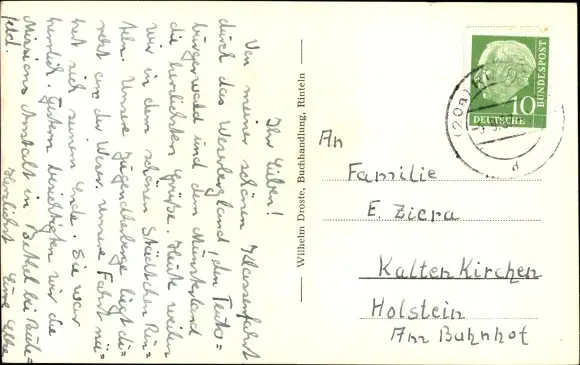 Ihr Lieben!
Von meiner schönen Klassenfahrt
durch das Weserbergland, den Teuto=
burgerwald und das Münsterland
die herzlichsten Grüße. Heute weilen
wir in dem schönen Städtchen Rin=
teln. Unsere Jugendherberge liegt di=
rekt an der Weser. Unsere Fahrt nä=
hert sich seinem Ende. Sie war
herrlich. Gestern besichtigten wir die
Anstalt in Bethel bei Biele=
feld. Herzlichst Eure Elke
Wilhelm Droste, Buchhandlung, Rinteln
10
DEUTSCHE
BUNDESPOST
(20a)
d
An
Familie
E. Ziera
Kaltenkirchen
Holstein
Am Bahnhof